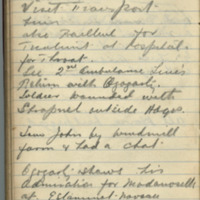 Visit Transport
also Bailleul for
Treatment at hospital
for throat.
See 2nd Ambulance Lines
Return with Ogogarty
Soldier wounded with
Shrapnel outside
Saw John by windmill
farm & had a chat.
Ogogarty shows his
Admiration for Madamoselle
at Estaminet